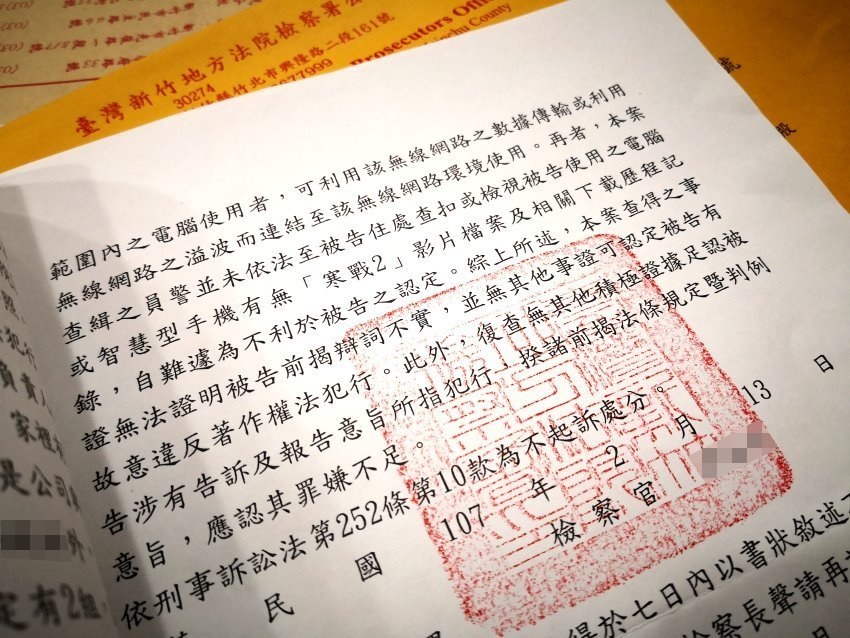 臺灣新竹地方法院檢察署公
30274
竹北市興隆路二段161號
Prosecutors Offi
County
範圍內之電腦使用者，可利用該無線網路之數據傳輸或利用
無線網路之溢波而連結至該無線網路環境使用。再者，本案
查緝之員警並未依法至被告住處查扣或檢視被告使用之電腦
或智慧型手機有無「寒戰2」影片檔案及相關下載歷程記
錄，自難遽為不利於被告之認定。綜上所述，本案查得之事
證無法證明被告前揭辯詞不實，並無其他事證可認定被告有
故意違反著作權法犯行。此外，復查無其他積極證據足認被
告涉有告訴及報告意旨所指犯行，揆諸前揭法條規定暨判例
意旨，應認其罪嫌不足。
依刑事訴訟法第252條第10款為不起訴處分。
民國107年2月13日
檢察官
得於七日內以書狀敘述
察長聲請再
犯行
負責人
家裡
是公司
外，
定有2組